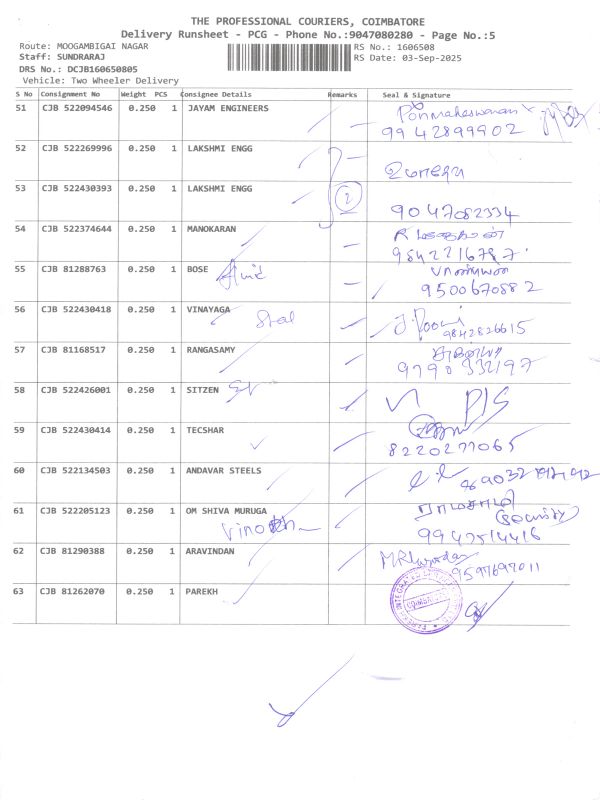 THE PROFESSIONAL COURIERS, COIMBATORE
Delivery Runsheet - PCG - Phone No.:9047080280 - Page No.:5
Route: MOOGAMBIGAI NAGAR RS No.: 1606508
Staff: SUNDRARAJ RS Date: 03-Sep-2025
DRS No.: DCJB160650805
Vehicle: Two Wheeler Delivery
S No Consignment No Weight PCS Consignee Details Remarks Seal & Signature
51 CJB 522094546 0.250 1 JAYAM ENGINEERS Ponmaheswaran
9942899902
52 CJB 522269996 0.250 1 LAKSHMI ENGG
53 CJB 522430393 0.250 1 LAKSHMI ENGG 2
9047082334
54 CJB 522374644 0.250 1 MANOKARAN
9842216787
55 CJB 81288763 0.250 1 BOSE
Fluid 9500670882
56 CJB 522430418 0.250 1 VINAYAGA
9842826615
57 CJB 81168517 0.250 1 RANGASAMY
9790332197
58 CJB 522426001 0.250 1 SITZEN
59 CJB 522430414 0.250 1 TECSHAR
8220277065
60 CJB 522134503 0.250 1 ANDAVAR STEELS
61 CJB 522205123 0.250 1 OM SHIVA MURUGA ராமசாமி
Vinoth Security
62 CJB 81290388 0.250 1 ARAVINDAN
9597697011
63 CJB 81262070 0.250 1 PAREKH